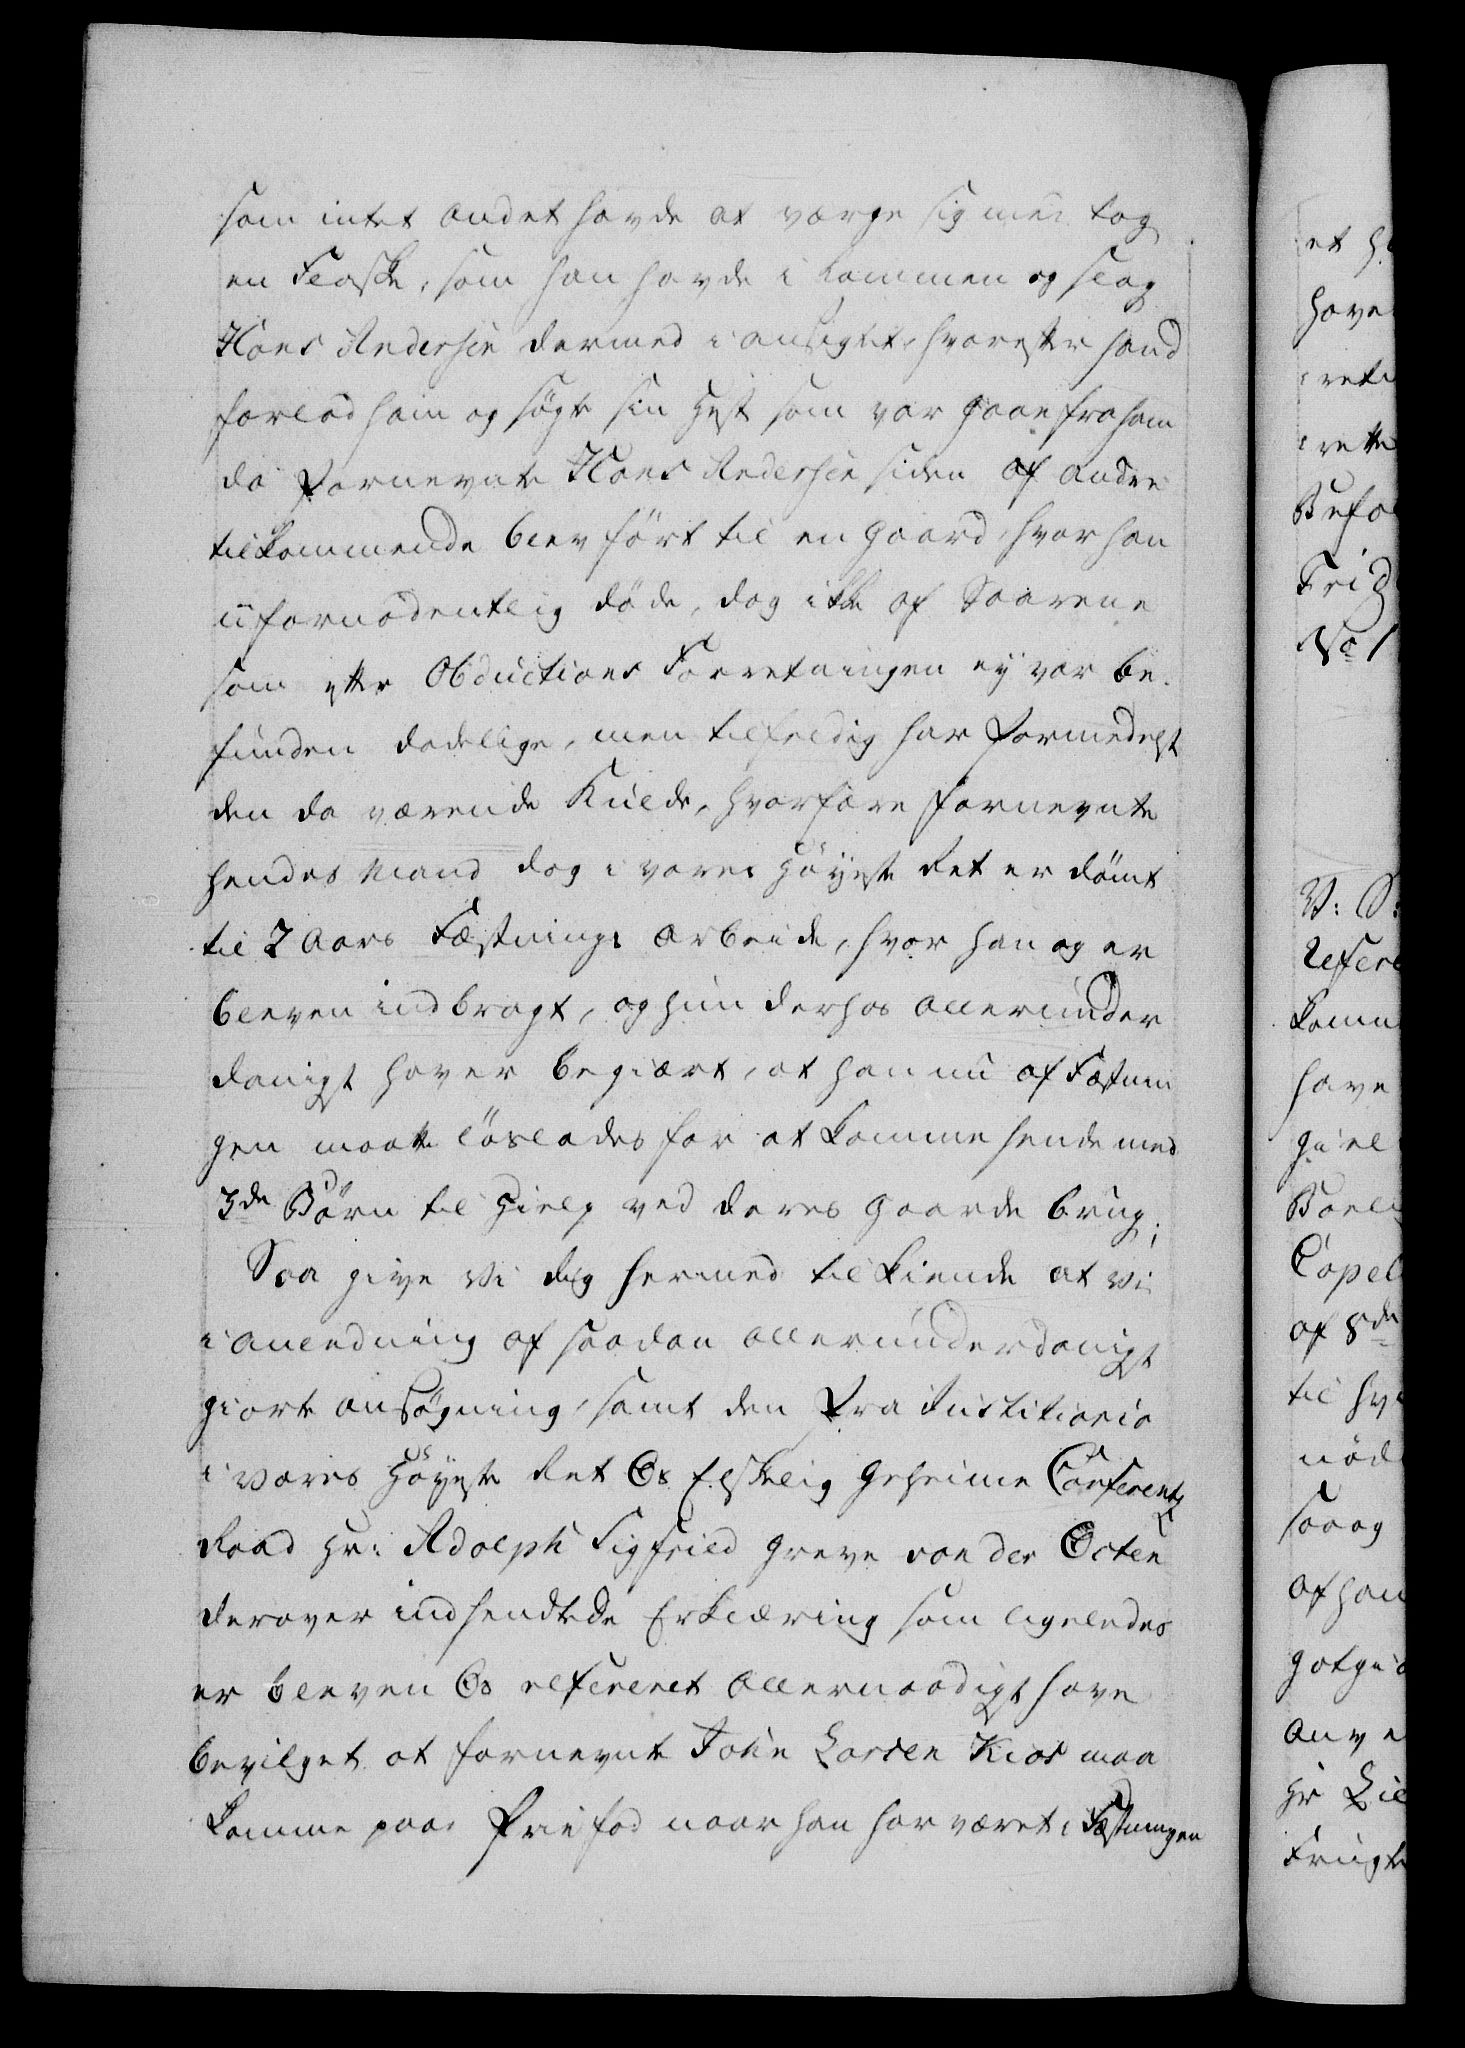 som intet andet havde at værge sig med tog
en Flaske, som han havde i Lommen og slog
Hans Andersen dermed i ansigtet, hvorefter hand
forlod ham og søgte sin Hest som var gaaen fra ham
da fornevnte Hans Andersen siden af andre
tilkommende blev ført til en gaard, hvor han
uformodentlig døde, dog ikke af Saarene
som efter Obductions Forretningen ej var be-
funden dødelige, men tilfeldig har formedelst
den da værende Kulde, hvorfore fornevnte
hendes Mand dog i vores Høyeste Ret er dømt
til 2 Aars Fæstnings Arbeide, hvor han og er
bleven indbragt, og hun derhos allerunder
danigst haver begiært, at han nu af Fæstnin
gen maatte løslades for at komme hende med
3de Børn til Hielp ved deres Gaards brug;
Saa give Vi dig hermed tilkiende at Vi
i anledning af saadan allerunderdanigst
giorte ansøgning, samt den Præ Justitiario
i vores Høyeste Ret Os Elskelig Geheime Conferentz
Raad Hr: Adolph Sigfried Greve von der Osten
derover indsendte Erklæring som ligeledes
er bleven Os refereret Allernaadigst have
bevilget at fornevnte John Larsen Kiøs maa
komme paa frie fod naar han har været i Fæstningen
et
have
i rette
Befa
Frid
No 1
V: S:
Refere
komm
have
Capel
af 8de
til hv
saa og
af han
Hr
Frugt